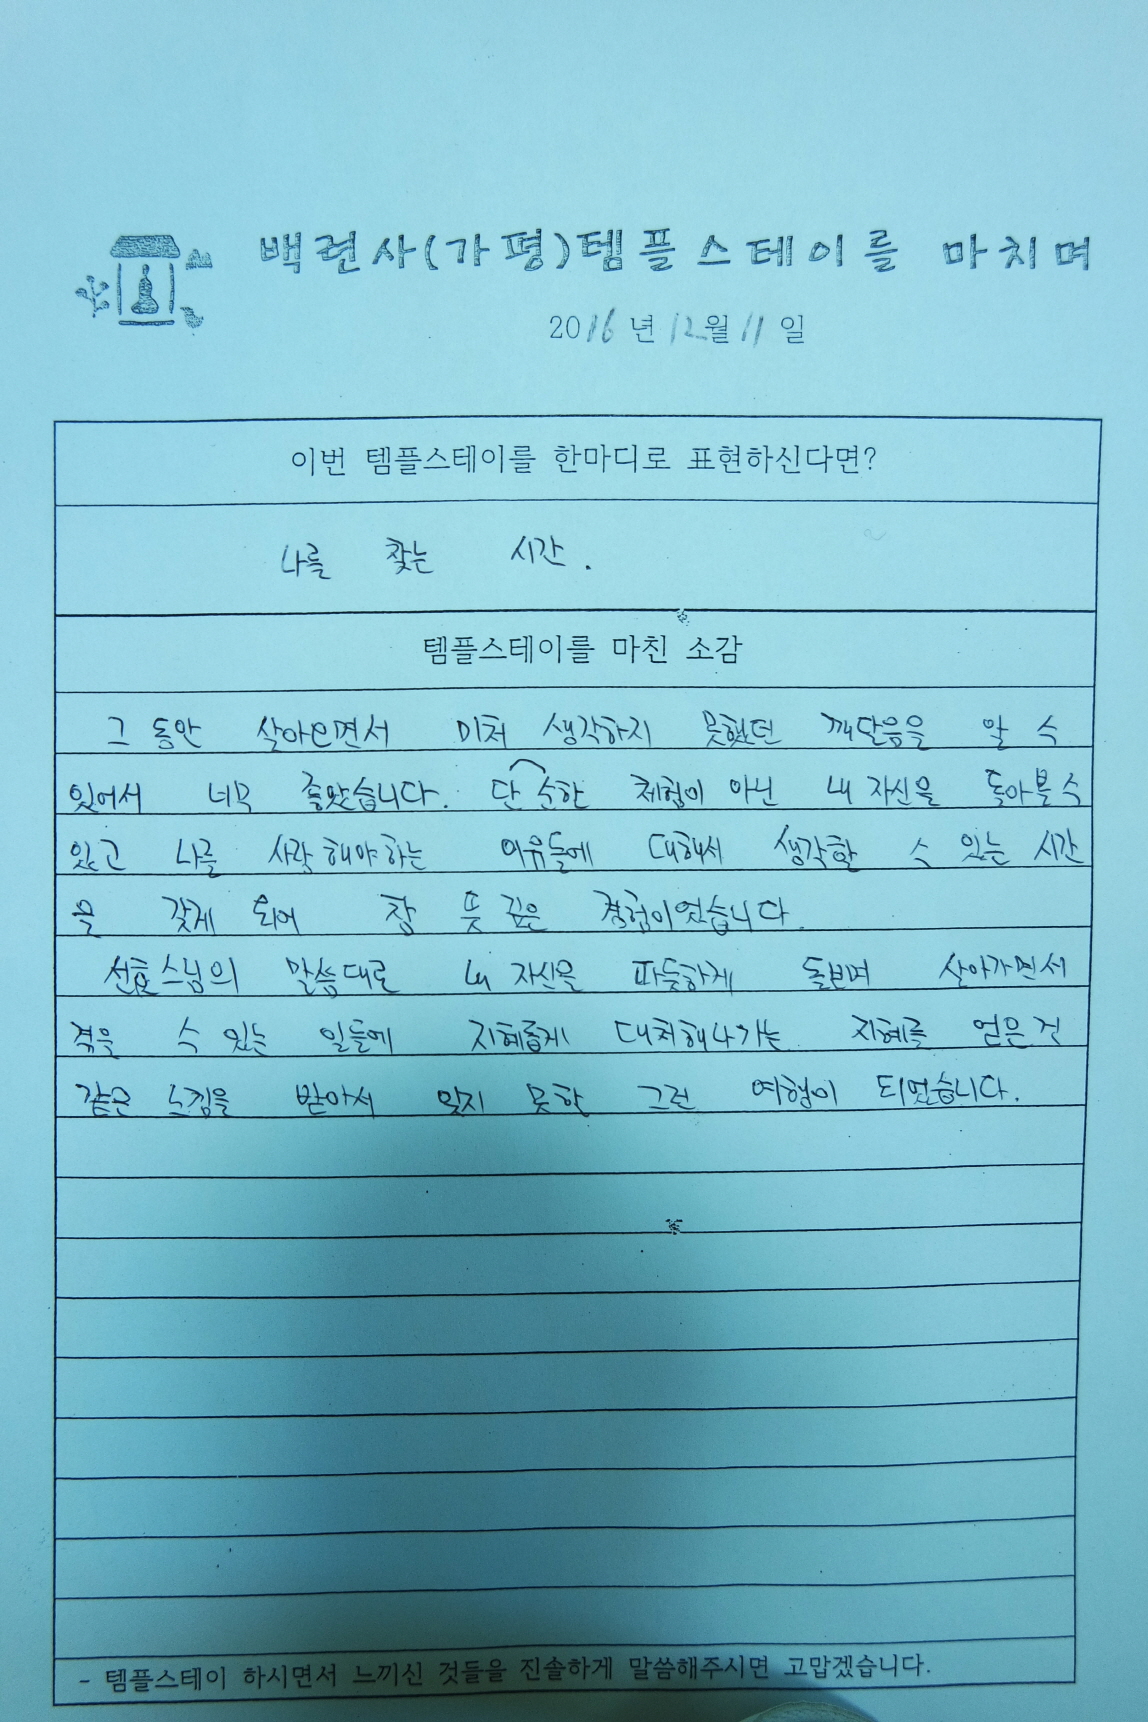 백련사(가평)템플스테이를 마치며
2016년 12월 11일
이번 템플스테이를 한마디로 표현하신다면?
나를 찾는 시간.
템플스테이를 마친 소감
그 동안 살아오면서 미처 생각하지 못했던 깨달음을 알 수
있어서 너무 좋았습니다. 단순한 체험이 아닌 내 자신을 돌아볼 수
있고 나를 사랑해야하는 이유들에 대해서 생각할 수 있는 시간
을 갖게 되어 참 뜻 깊은 경험이었습니다.
선효스님의 말씀대로 내 자신을 따뜻하게 돌보며 살아가면서
겪을 수 있는 일들에 지혜롭게 대처해나가는 지혜를 얻은 것
같은 느낌을 받아서 잊지 못할 그런 여행이 되었습니다.
- 템플스테이 하시면서 느끼신 것들을 진솔하게 말씀해주시면 고맙겠습니다.